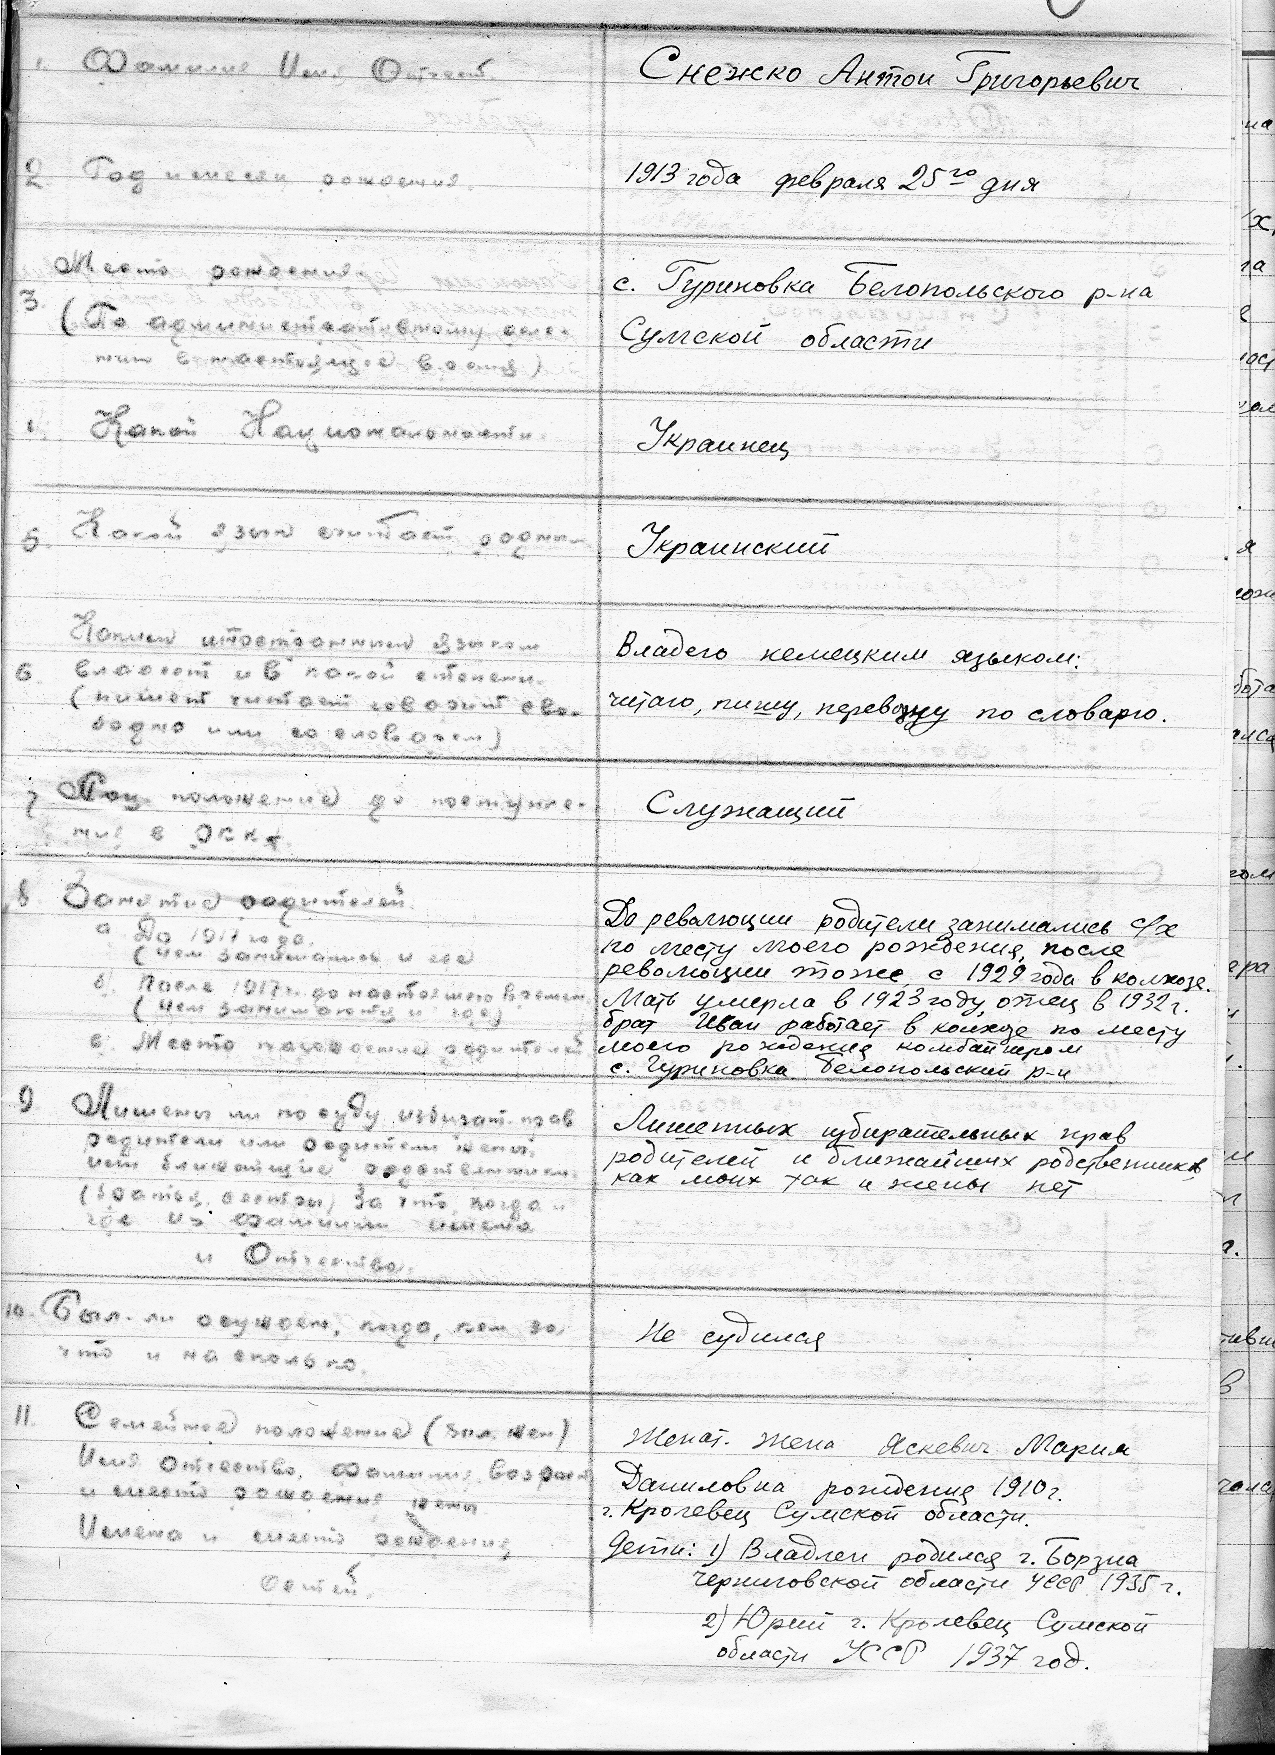 1. Фамилия Имя Отчест.
Снежко Антон Григорьевич
2. Год и месяц рождения.
1913 года февраля 25го дня
Место рождения
3.
(По административному деле-
нию в настоящее время)
с. Гуриновка Белопольского р-на
Сумской области
Какой Национальности.
Украинец
5. Какой язык считает родным
Украинский
Каким иностранным языком
6. владеет и в какой степени.
(пишет читает говорит сво-
бодно или со словарем)
Владею немецким языком:
читаю, пишу, перевожу по словарю.
7 Соц. положение до поступле-
ния в РККА
Служащий
8 Занятие родителей.
а До 1917 года.
(чем занимались и где
б) После 1917 г. до настоящего времен.
(чем занимаются и где)
в. Место нахождение родителей
До революции родители занимались с/х
по месту моего рождения, после
революции тоже, с 1929 года в колхозе.
Мать умерла в 1923 году, отец в 1932 г.
брат Иван работает в колхозе по месту
моего рождения комбайнером
с. Гуриновка Белопольский р-н
9 Лишены ли по суду избират. прав
родители или родители жены,
или ближайшие родственники.
(братья, сестры) За что, когда и
где их фамилии имена
и Отчества.
Лишенных избирательных прав
родителей и ближайших родственников
как моих так и жены нет
10. Был-ли осужден, когда, кем за
что и насколько.
Не судился
11. Семейное положение (
Имя Отчество, Фамилия, возраст
и место рождения жены
Имена и место рождения
детей.
Женат. Жена Яскевич Мария
Даниловна рождения 1910 г.
г. Кролевец Сумской области.
Дети: 1) Владлен родился г. Борзна
Черниговской области УССР 1935 г.
2) Юрий г. Кролевец Сумской
области УССР 1937 год.